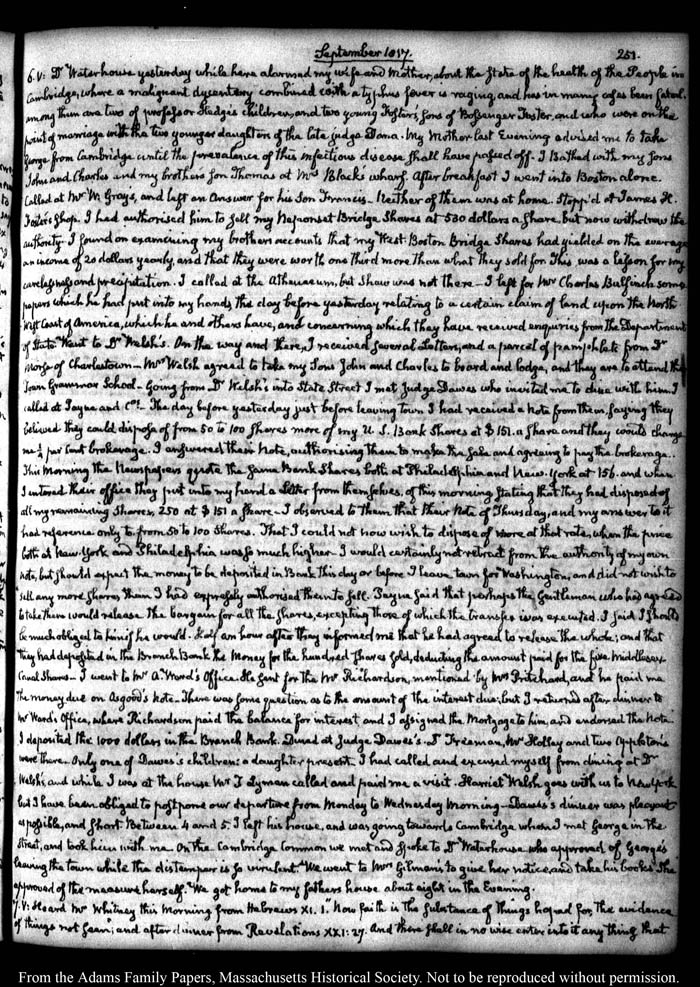 September 1817.
251.
6. V: Dr Waterhouse yesterday while here alarmed my wife and Mother, about the State of the health of the People in
Cambridge, where a malignant dysentery combined with a typhus fever is raging, and has in many cases been fatal.
among them are two of professor Hedge's children, and two young Foster's, Sons of Bossenger Foster, and who were on the
point of marriage with the two younger daughters of the late judge Dana. My Mother last Evening advised me to take
George from Cambridge until the prevalence of this infectious disease shall have passed off. I Bathed with my Sons
John and Charles and my brothers Son Thomas at Mrs Black's wharf. After breakfast I went into Boston alone.
Called at Mr W. Grays, and left an Answer for his Son Francis— Neither of them was at home. Stopp'd at James H.
Foster's Shop. I had authorised him to sell my Neponset Bridge Shares at 530 dollars a share, but now withdrew the
authority. I found on examining my brothers accounts that my West Boston Bridge Shares had yielded on the average
an income of 20 dollars yearly, and that they were worth one third more than what they sold for. This was a lesson for my
carelessness and precipitation. I called at the Athenaeum, but Shaw was not there— I left for Mr Charles Bulfinch some
papers which he had put into my hands the day before yesterday relating to a certain claim of land upon the North
West Coast of America, which he and others have, and concerning which they have received enquiries from the Department
of State. Went to Dr Welsh's. On the way and there, I received several Letters, and a parcel of pamphlets from Dr
Morse of Charlestown— Mrs Welsh agreed to take my Sons John and Charles to board and lodge, and they are to attend the
Town Grammar School— Going from Dr Welsh's into State Street I met Judge Dawes who invited me to dine with him. I
called at Tayne and Co's— The day before yesterday just before leaving town I had received a Note from them, saying they
believed they could dispose of from 50 to 100 Shares more of my U. S. Bank Shares at $151. a share and they would charge
me ¼ per Cent brokerage. I answered their Note, authorising them to make the sale and agreeing to pay the brokerage.
This Morning the Newspapers quote the same Bank Shares both at Philadelphia and New-York at 156. and when
I entered their office they put into my hand a Letter from themselves, of this morning stating that they had disposed of
all my remaining Shares, 250 at $151 a share— I observed to them that their Note of Thursday, and my answer to it
had reference only to from 50 to 100 Shares. That I could not now wish to dispose of more at that rate, when the price
both at New-York and Philadelphia was so much higher— I would certainly not retreat from the authority of my own
note, but should expect the money to be deposited in Bank this day or before I leave town for Washington, and did not wish to
sell any more shares, than I had expressly authorised them to sell. Tayne said that perhaps the Gentleman who had agreed
to take them would release the bargain for all the shares, excepting those of which the transfer was executed. I said I should
be much obliged to him if he would. Half an hour after they informed me that he had agreed to release the whole; and that
they had deposited in the Branch Bank the Money for the hundred shares sold, deducting the amount paid for the five Middlesex
Canal Shares— I went to Mr A. Ward's Office. He sent for the Mr Richardson, mentioned by Mrs Pritchard, and he paid me
the money due on Asgood's Note— There was some question as to the amount of the interest due; but I returned after dinner to
Mr Ward's Office, where Richardson paid the balance for interest and I assigned the Mortgage to him, and endorsed the Note
I deposited the 1000 dollars in the Branch Bank. Dined at Judge Dawes's. Freeman, Mr Holley and two Appleton's
were there. Only one of Dawes's children: a daughter present. I had called and excused myself from dining at Dr
Welsh's, and while I was at the house Mr T. Lyman called and paid me a visit. Harriet Welsh goes with us to New-York
but I have been obliged to postpone our departure from Monday to Wednesday Morning— Dawes's dinner was pleasant
as possible, and short. Between 4 and 5. I left his house, and was going towards Cambridge when I met George in the
Street, and took him with me. On the Cambridge Common we met and spoke to Dr Waterhouse who approved of George's
leaving the town while the distemper is so virulent. We went to Mrs Gilman's to give her notice, and take his books. She
approved of the measure herself. We got home to my fathers house about eight in the Evening.
7. V: Heard Mr Whitney this Morning from Hebrews XI. 1. "Now faith is the substance of things hoped for, the evidence
of things not seen"; and after dinner from Revelations XXI: 27. And there shall in no wise enter into it any thing that
From the Adams Family Papers, Massachusetts Historical Society. Not to be reproduced without permission.